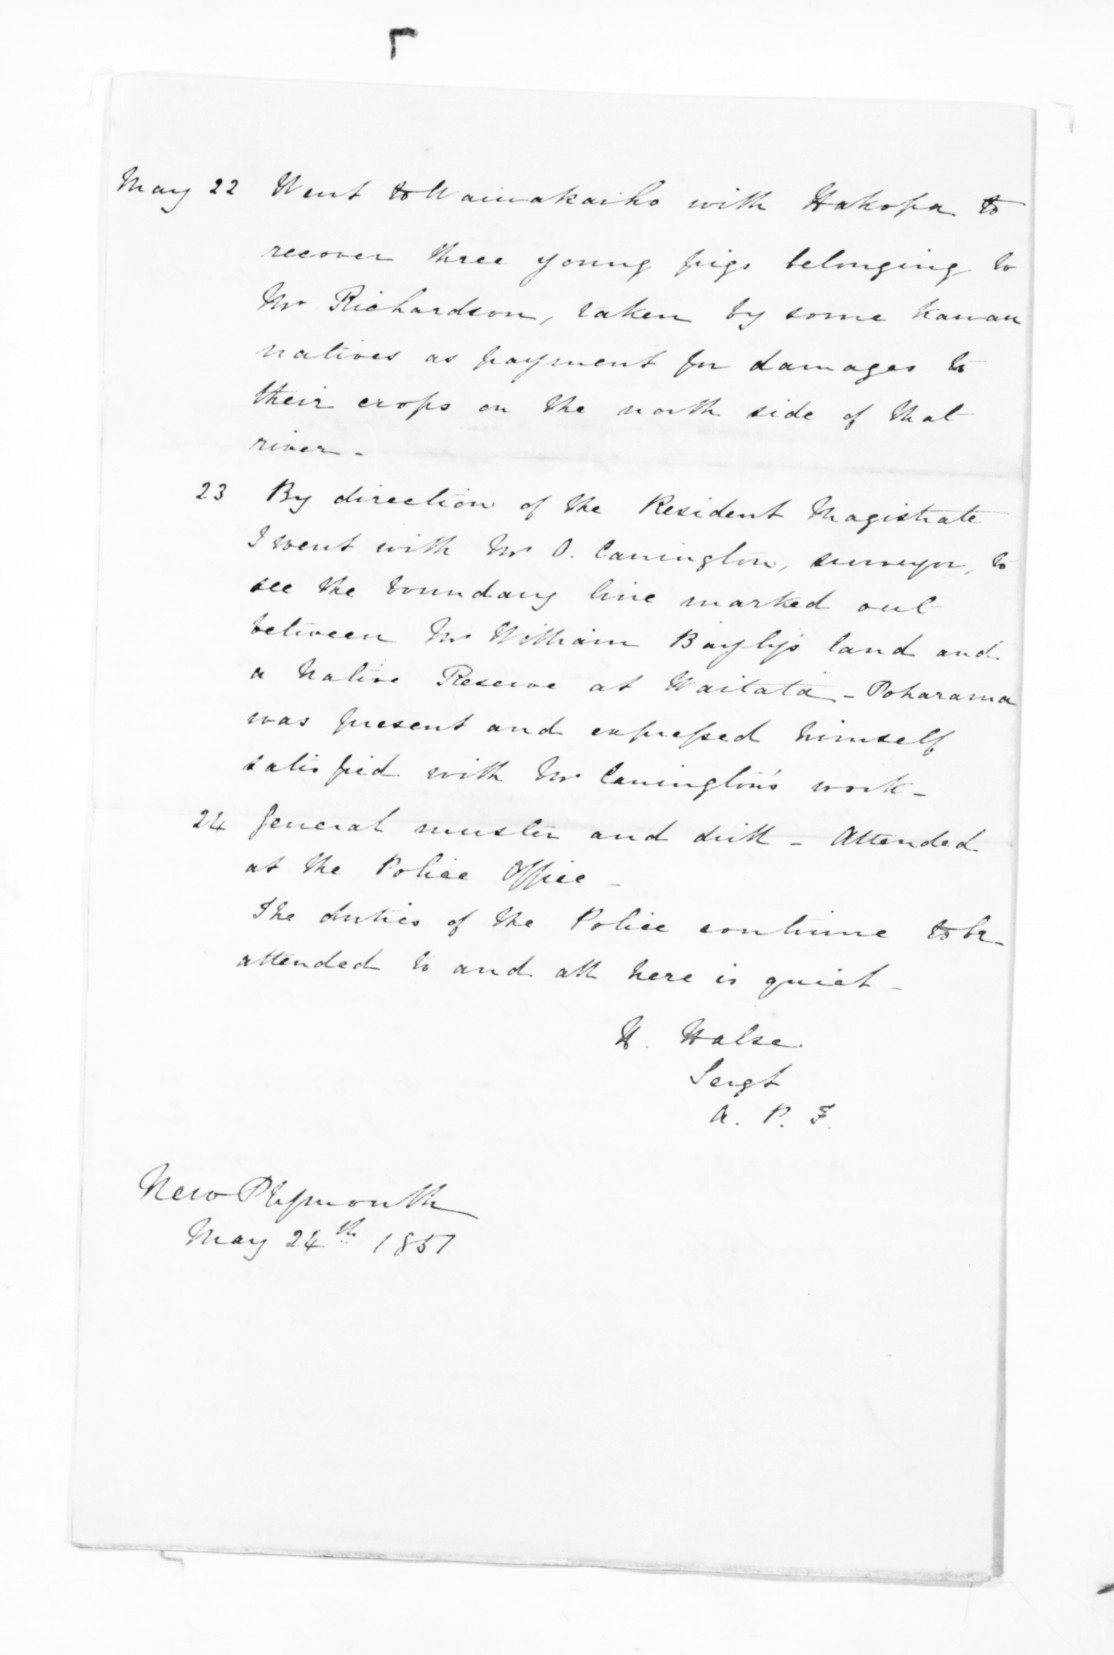 May 22 Went to Waiwakaiho with Hakopa to
recover three young pigs belonging to
Mr Richardson, taken by some Kawau
natives as payment for damages to
their crops on the north side of that
river -
23 By direction of the Resident Magistrate
I went with Mr O. Carrington, surveyor, to
see the boundary line marked out
between Mr William Bayly's land and
a Native Reserve at Waitata - Poharama
was present and expressed himself
satisfied with Mr Carrington's work -
24 General muster and drill - Attended
at the Police Office -
The duties of the Police continue to be
attended to and all here is quiet -
H. Halse
Sergt
A. P. F.
New Plymouth
May 24th 1851